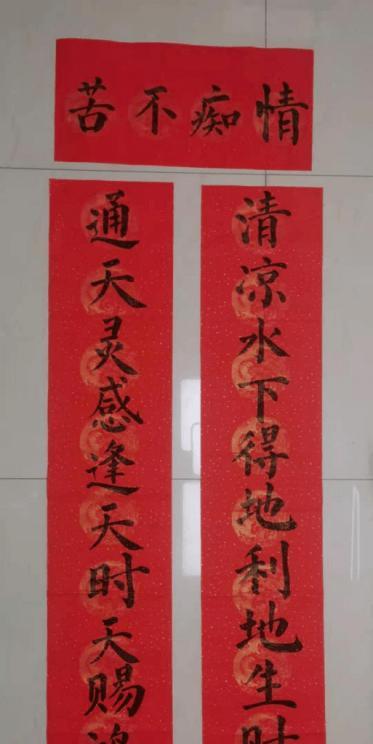 情痴不苦
清凉水下得地利地生
通天灵感逢天时天赐